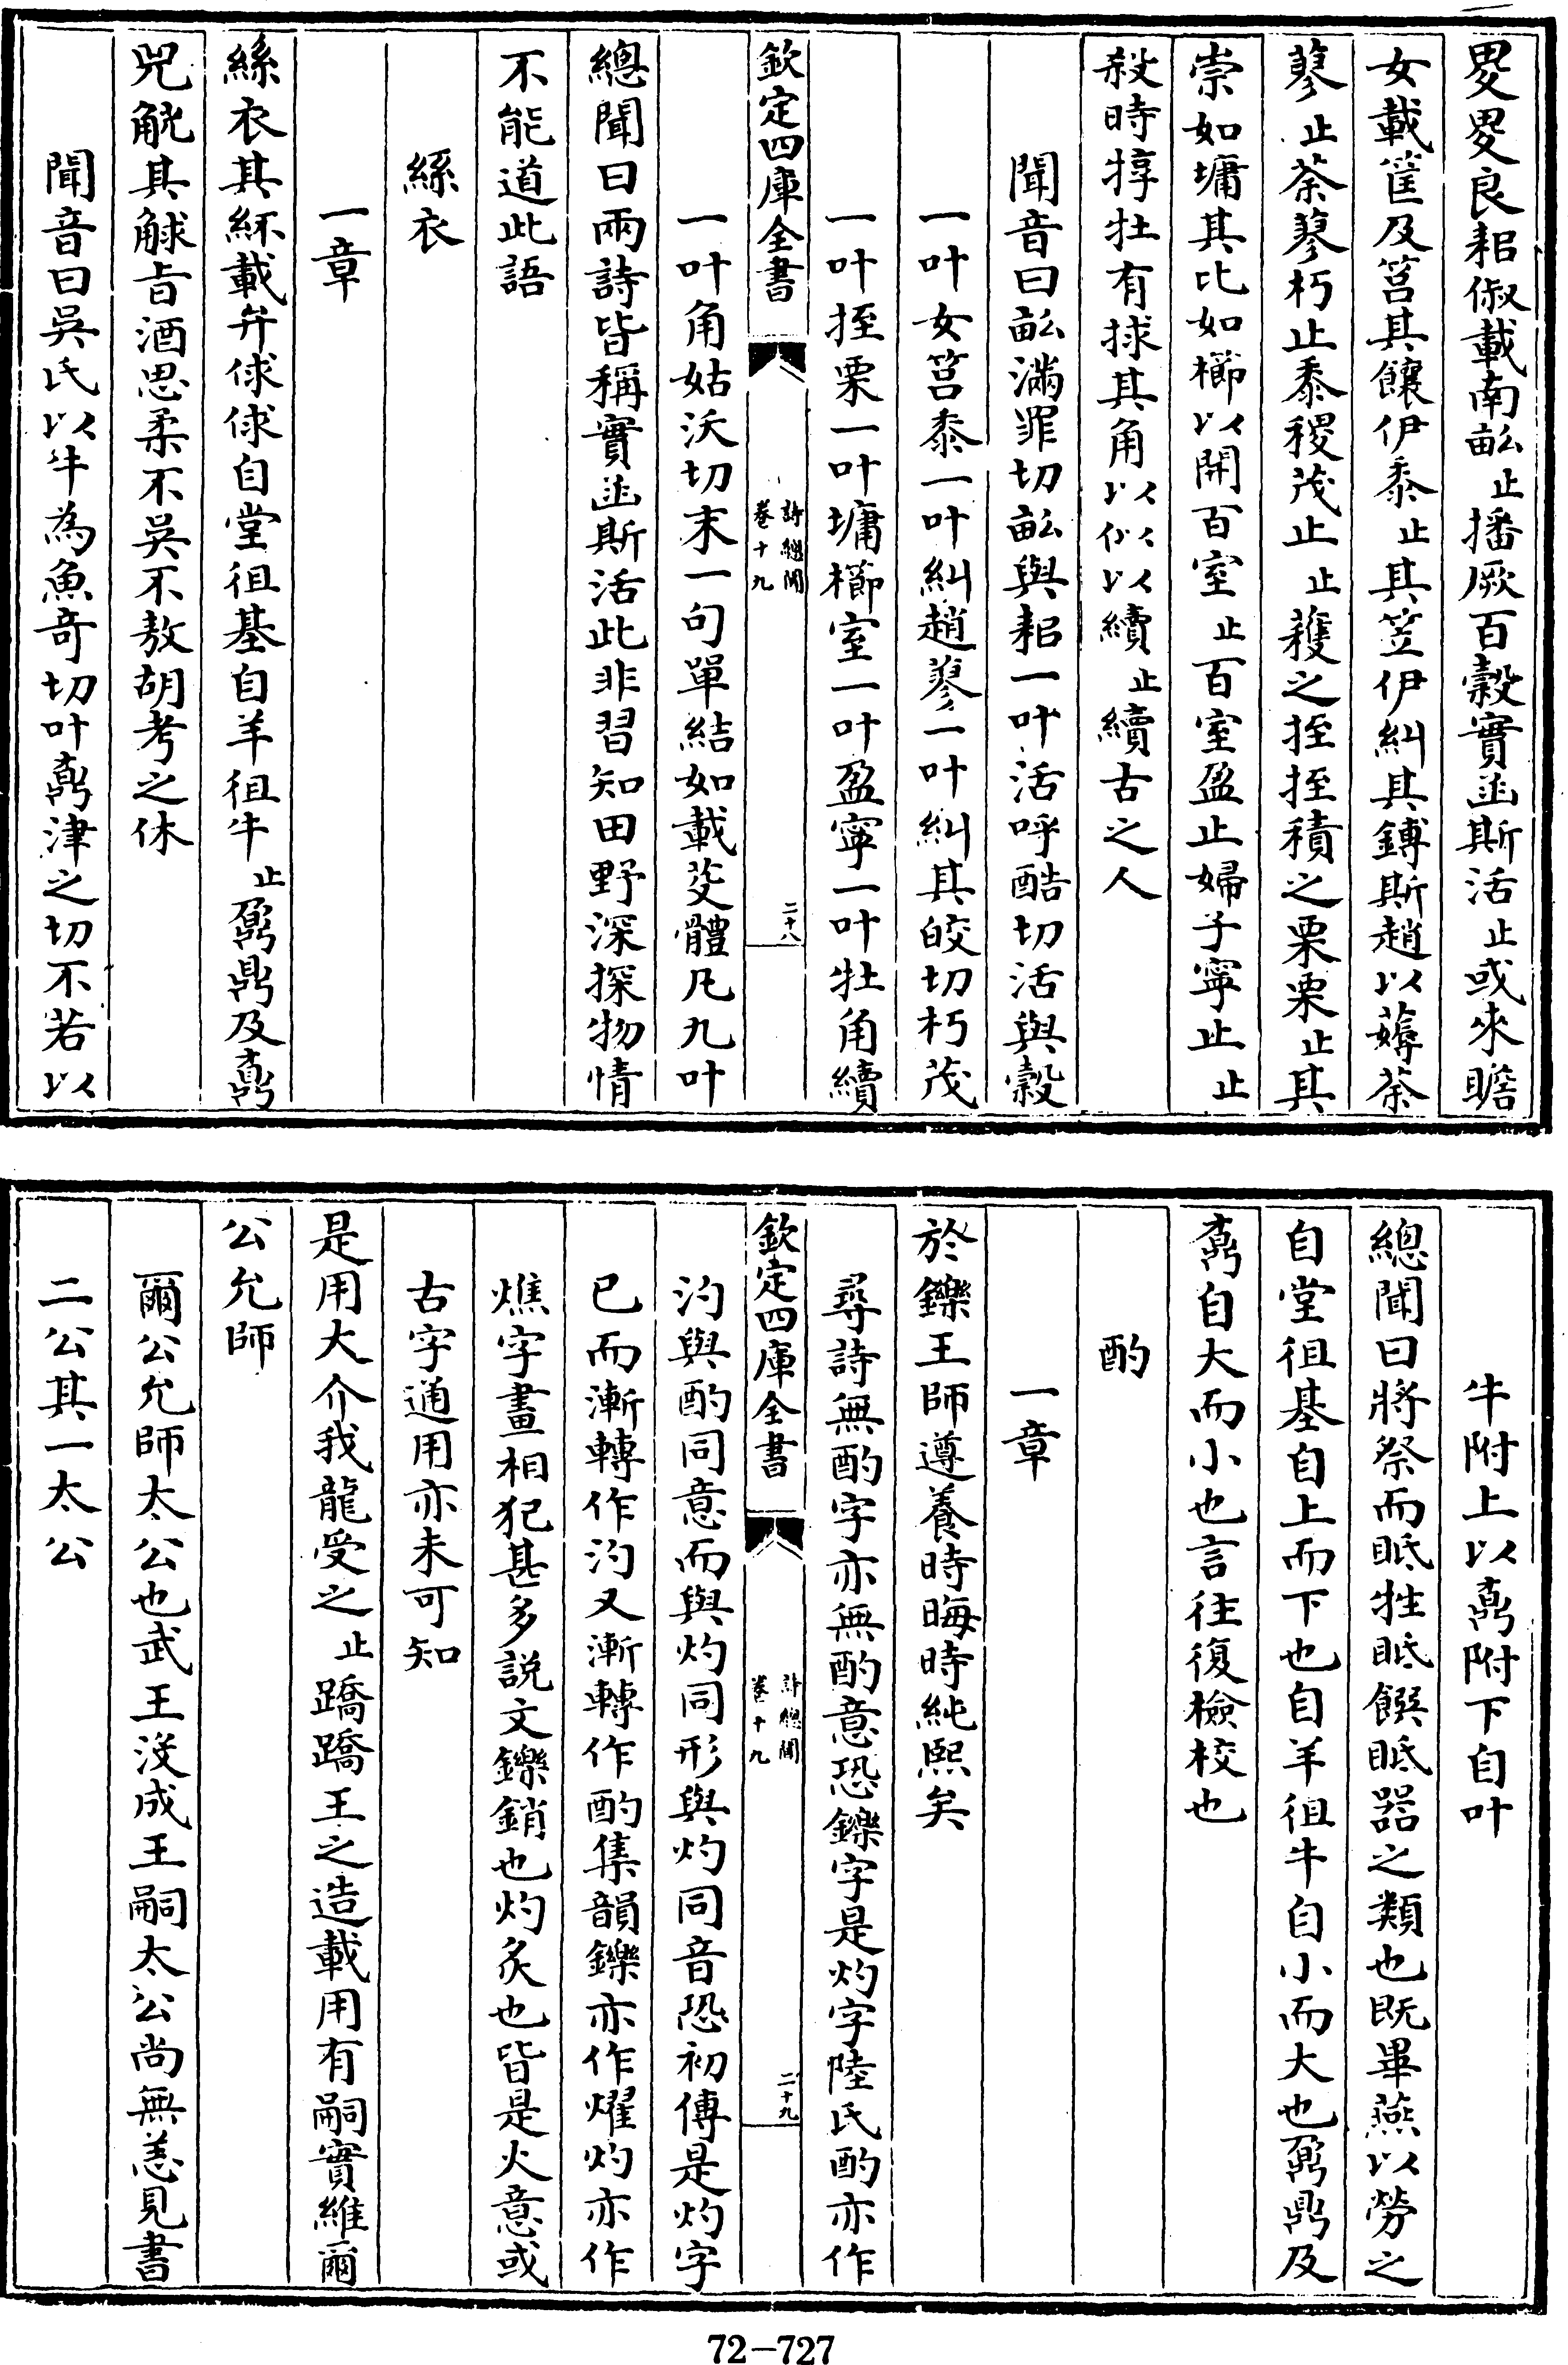 畟畟良耜俶載南畝止播厥百榖實函斯活止或來瞻
女載筐及筥其饟伊黍止其笠伊糾其鎛斯趙以薅荼
蓼止荼蓼朽止黍稷茂止止穫之挃挃積之栗栗止其
崇如墉其比如櫛以開百室止百室盈止婦子寧止止
殺時犉牡有捄其角以似以續止續古之人
聞音曰畝滿罪切畝與耜一叶活呼酷切活與榖
一叶女筥黍一叶糾趙蓼一叶糾其皎切朽茂
一叶挃栗一叶墉櫛室一叶盈寧一叶牡角續
欽定四庫全書
詩總聞
卷十九
二十八
一叶角姑沃切末一句單結如載芟體凡九叶
總聞曰兩詩皆稱實函斯活此非習知田野深探物情
不能道此語
絲衣
一章
絲衣其紑載弁俅俅自堂徂基自羊徂牛止鼐鼎及鼒
兕觥其觩旨酒思柔不吳不敖胡考之休
聞音曰吳氏以牛為魚奇切叶鼒津之切不若以
牛附上以鼒附下自叶
總聞曰將祭而眡牲眡饌眡器之類也既畢燕以勞之
自堂徂基自上而下也自羊徂牛自小而大也鼐鼎及
鼒自大而小也言往復檢校也
酌
一章
於鑠王師遵養時晦時純熙矣
尋詩無酌字亦無酌意恐鑠字是灼字陸氏酌亦作
欽定四庫全書
詩總聞
卷十九
二十九
汋與酌同意而與灼同形與灼同音恐初傳是灼字
已而漸轉作汋又漸轉作酌集韻鑠亦作燿灼亦作
燋字畫相犯甚多說文鑠銷也灼炙也皆是火意或
古字通用亦未可知
是用大介我龍受之止蹻蹻王之造載用有嗣實維爾
公允師
爾公允師太公也武王沒成王嗣太公尚無恙見書
二公其一太公
72-727